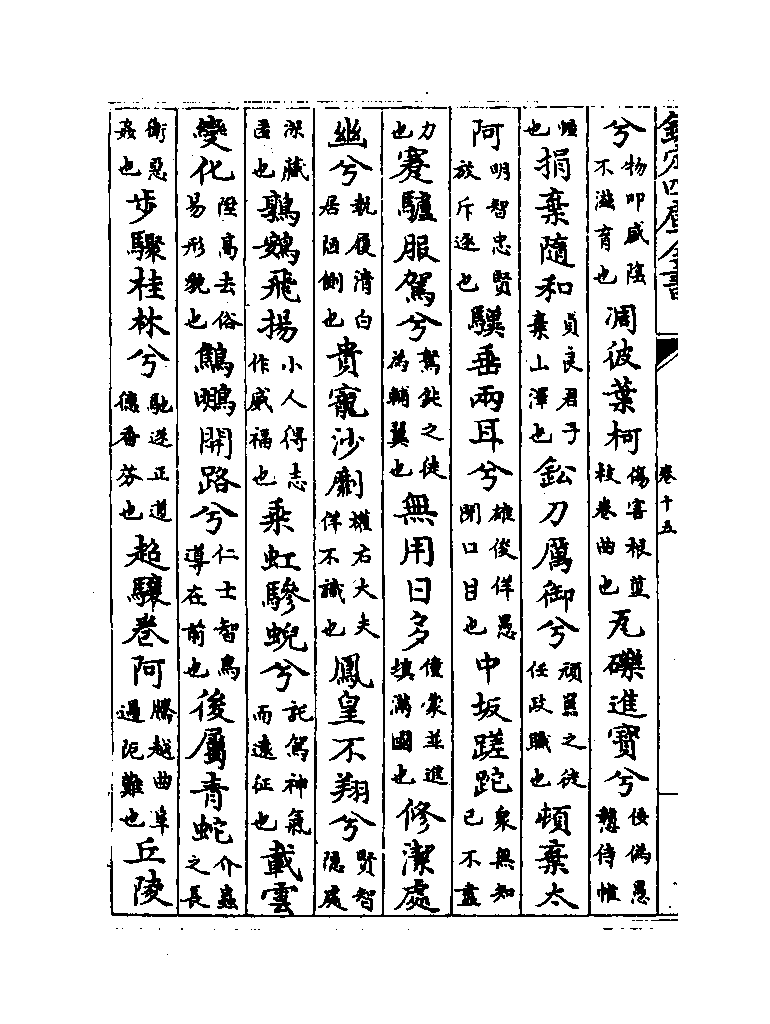 欽定四庫全書
卷十五
兮物叩盛陰不滋育也凋彼葉柯傷害根莖枝卷曲也瓦礫進寶兮佞偽愚戇侍帷
幄也捐棄隨和貞良君子棄山澤也鈆刀厲御兮頑嚚之徒任政職也頓棄太
阿明智忠賢放斥逐也驥垂兩耳兮雄俊佯愚閉口目也中坂蹉跎衆無知己不盡
力也蹇驢服駕兮駑鈍之徒為輔翼也無用日多僮蒙並進填滿國也修潔處
幽兮執履清白居陋側也貴寵沙劘權右大夫佯不識也鳳皇不翔兮賢智隱處
深藏匿也鶉鴳飛揚小人得志作威福也乘虹驂蜺兮託駕神氣而遠征也載雲
變化陞高去俗易形貌也鷦鵬開路兮仁士智鳥導在前也後屬青蛇介蟲之長
衛惡姦也步驟桂林兮馳逐正道德香芬也超驤卷阿騰越曲阜過阨難也丘陵